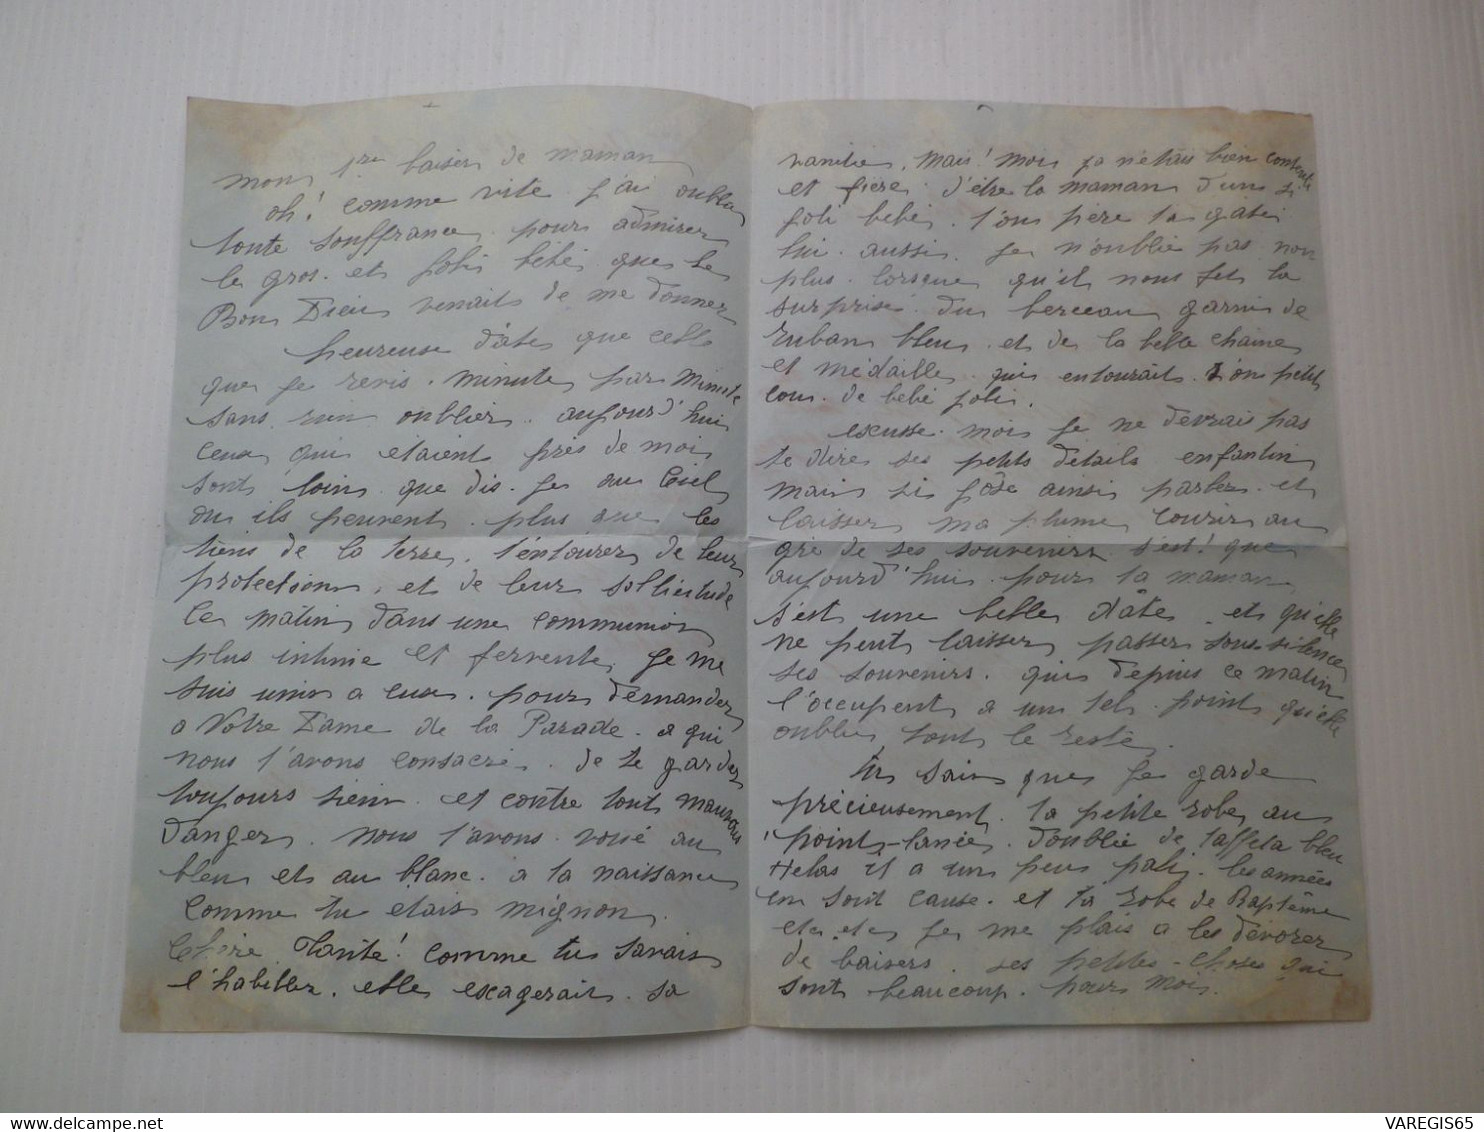 mon 1re baiser de maman
oh! comme vite j'ai oublié
toute souffrance. pour admirer
le gros. et joli bébé que le
Bon Dieu venait de me donner
heureuse date que celle
que je revis. minute par minute
sans rien oublier. aujourd'hui
ceux qui etaient près de moi
sont loin que dis-je au Ciel
ou ils peuvent. plus que les
liens de la terre. t'entourer de leur
protection, et de leur sollicitude
ce matin dans une communion
plus intime et fervente, je me
suis unir a eux. pour demander
a Notre Dame de la Parade. a qui
nous t'avons consacré. de te garder
toujours sien. et contre tout mauvais
danger. nous t'avons voué au
bleu et au blanc. a ta naissance
comme tu etais mignon.
Chère Tante! comme tu savais
l'habiller. elle exagerait. sa
vanité. mais! moi ça n'étais bien contente
et fière. d'être la maman d'un si
joli bébé. ton père ta gâté
lui. aussi. je n'oublie pas non
plus. lorsque qu'il nous fit la
surprise du berceau garni de
ruban bleu. et de la belle chaine
et médaille qui entourait. ton petit
cou. de bébé joli.
excusse. moi je ne devrais pas
te dire ses petits détails enfantin
mais si j'ôse ainsi parler. et
laisser ma plume courir au
gré de ses souvenirs. s'est! que
aujourd'hui. pour ta maman
s'est une belle dâte. et qu'elle
ne peut laisser passer sous-silence
ses souvenirs. qui depuis ce matin
l'occupent a un tel. point qu'elle
oublie tout le reste.
tu sais que je garde
précieusement. ta petite robe au
point-lancé. doublée de taffeta bleu
Helas il a un peu pali. les années
en sont cause. et ta robe de Baptême
et et je me plais a les dévorer
de baisers. ses petites-choses qui
sont beaucoup. pour moi.
VAREGIS65